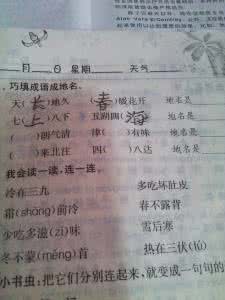 月 日 星期 天气
巧填成语成地名。
天(长)地久 (春)暖花开 地名是
七(上)八下 五湖四(海) 地名是
( )朗气清 津( )有味 地名是
( )来北往 四( )八达 地名是
我会读一读,连一连。
冷在三九 多吃坏肚皮
霜(shuāng)前冷 春不露背
少吃多滋(zī)味 雪后寒
冬不蒙(méng)首 热在三伏(fú)
小书虫:把它们分别连起来,就变成一句句的